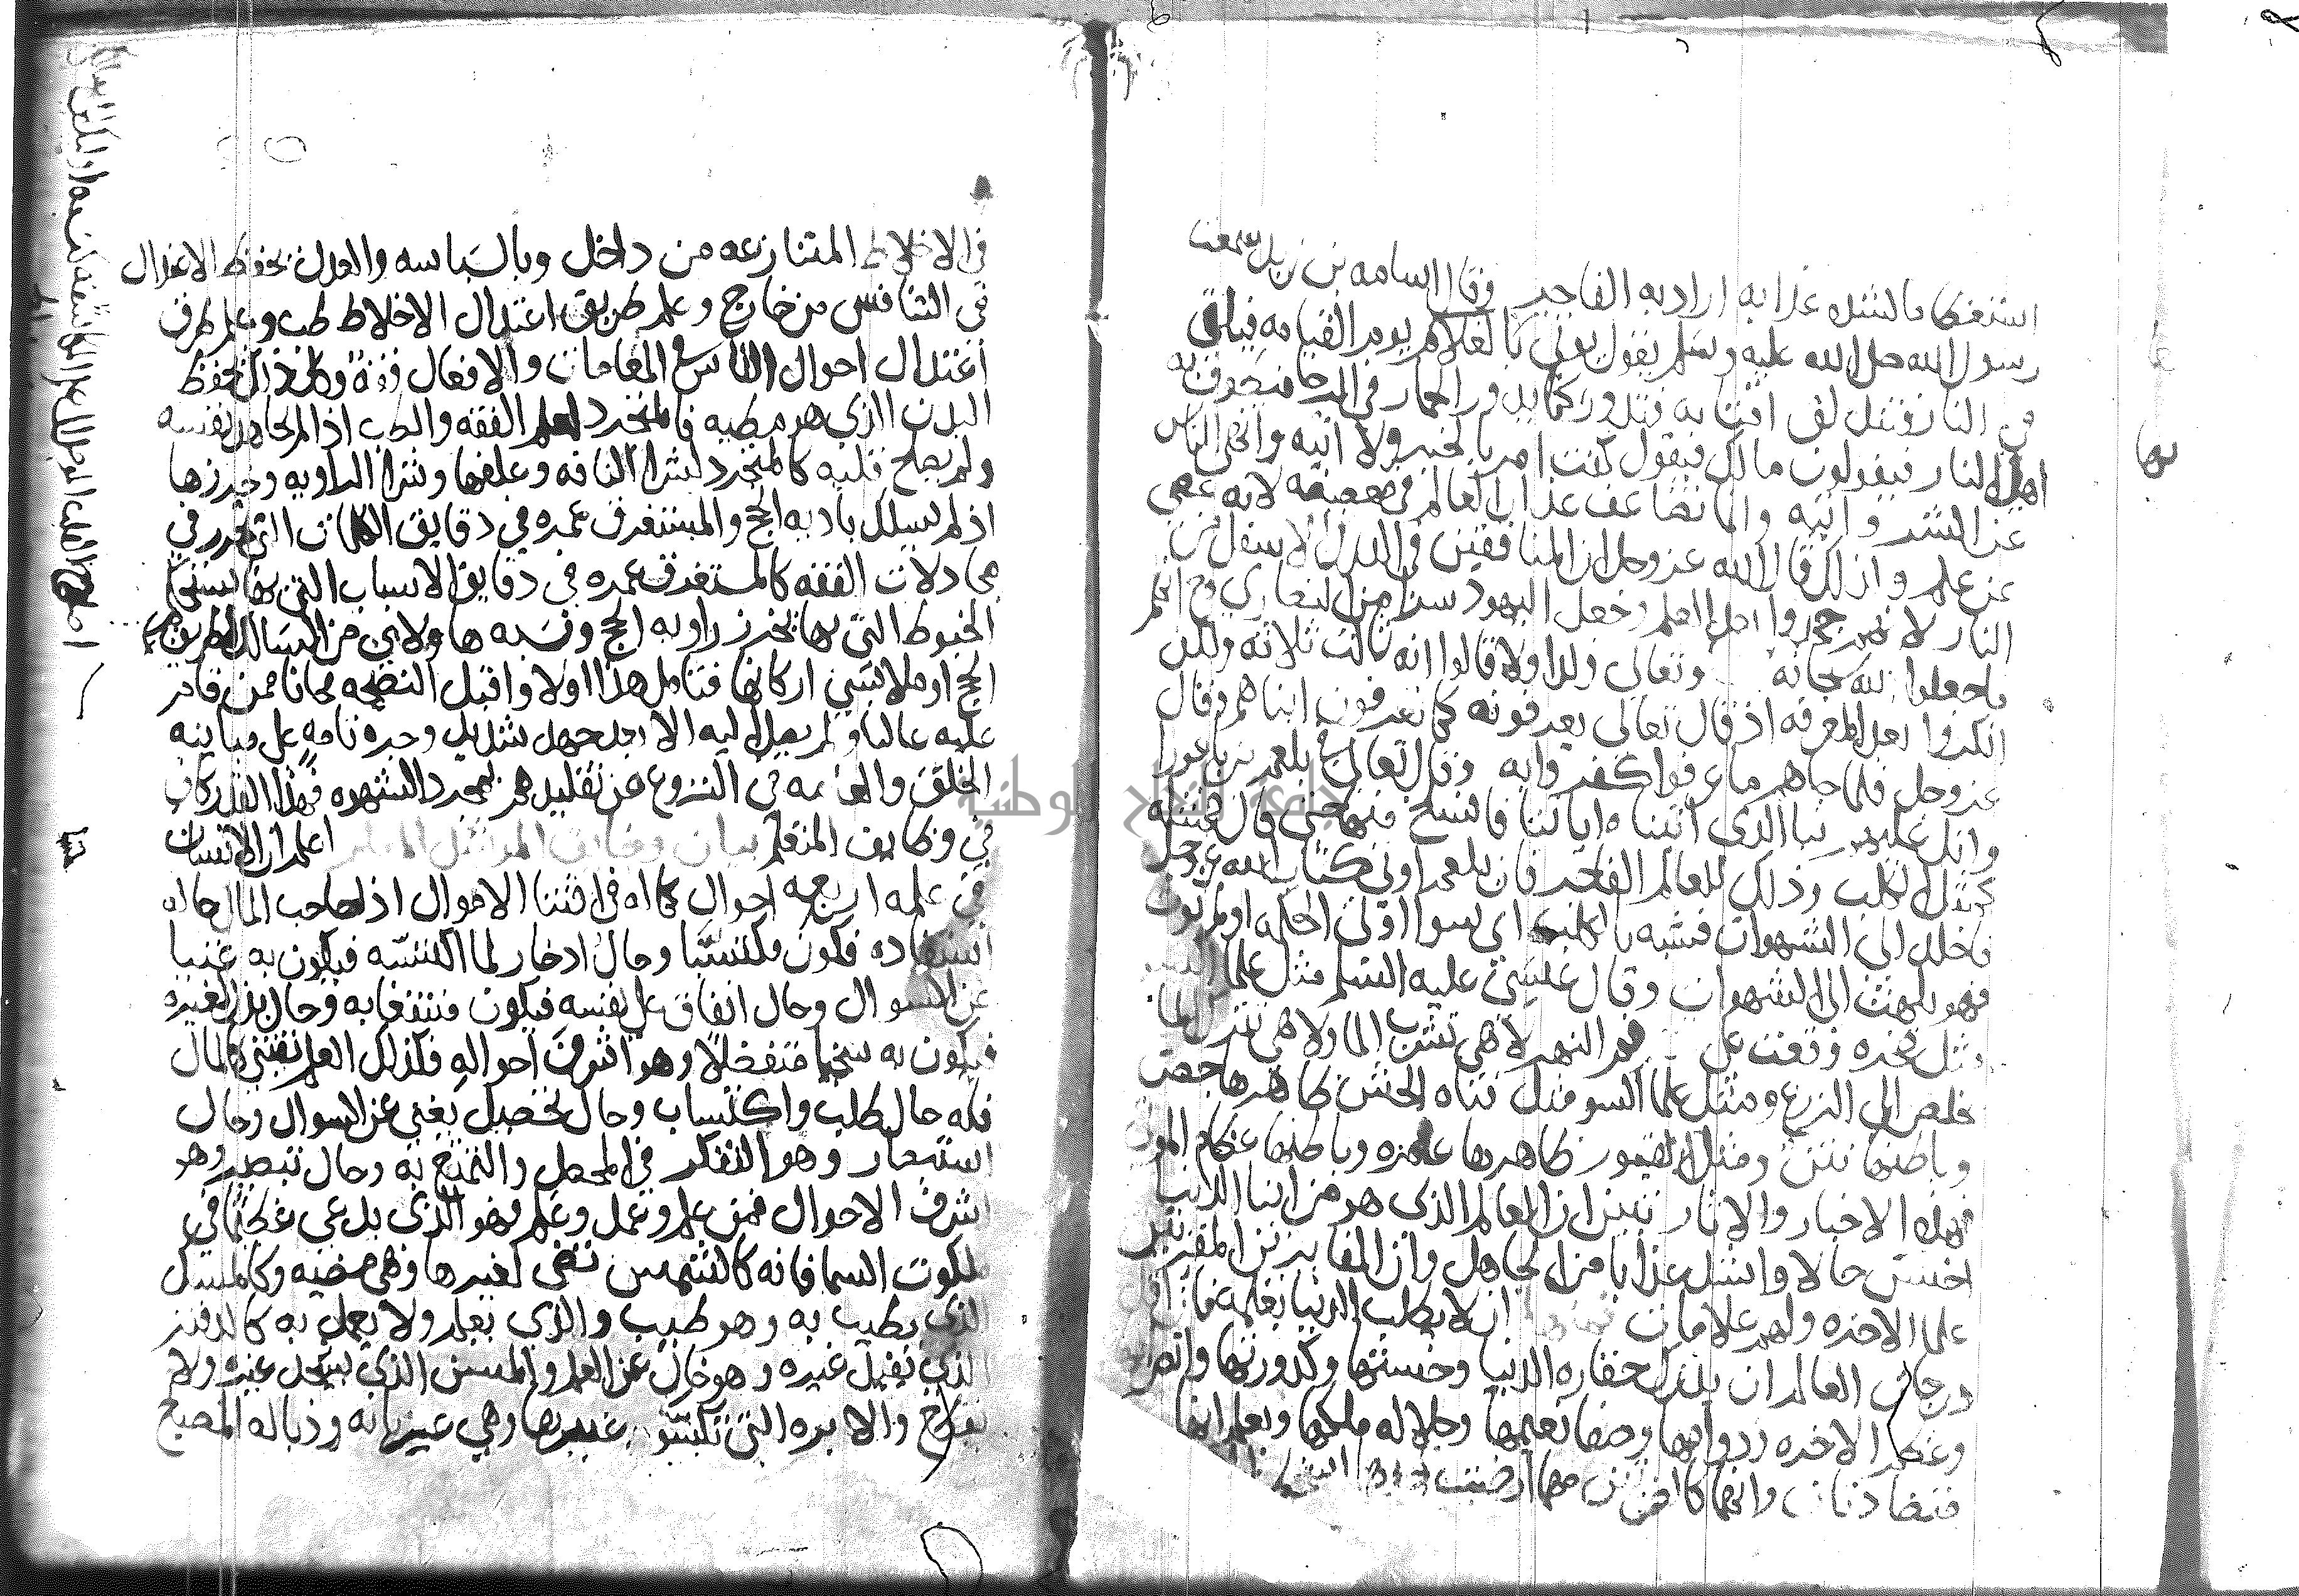 استعظاما لشده عذابه اراد به الفاجر وقال اسامه بن زيد سمعت
رسول الله صلى الله عليه وسلم يقول يوتى بالعالم يوم القيامه فيلقى
في النار فتندلق اقتابه فيدور كما يدور الحمار في الرحا فيطوف به
اهل النار فيقولون مالك فيقول كنت امر بالخير ولا اتيه وانهى الناس
عن الشر واتيه وانما تضاعف عذاب العالم في معصيته لانه عصى
عن علم ولذلك قال الله عز وجل ان المنافقين في الدرك الاسفل من
النار لانهم جحدوا بعد العلم وجعل اليهود شرا من النصارى مع انهم
ما جعلوا لله سبحانه وتعالى ولدا ولا قالوا انه ثالث ثلاثه ولكن
انكروا بعد المعرفه اذ قال تعالى يعرفونه كما يعرفون ابناهم وقال
عز وجل فلما جاهم ما عرفوا كفروا به وقال تعالى في بلعم بن باعورا
واتل عليهم نبا الذي اتيناه اياتنا فانسلخ منها حتى قال فمثله
كمثل الكلب وذلك للعالم الفاجر فان بلعم اوتي كتاب الله عز وجل
فاخلد الى الشهوات فشبه بالكلب اي سوا اوتي الحكمه او لم يوت
فهو يلهث الى الشهوات وقال عيسى عليه السلم مثل علما السو
مثل صخره وقعت على فم النهر لا هي تشرب الما ولا هي تترك الما
يخلص الى الزرع ومثل علما السو مثل قناه الحش ظاهرها جص
وباطنها نتن ومثل القبور ظاهرها عامره وباطنها عظام الموتى
فهذه الاخبار والاثار تبين ان العالم الذي هو من ابنا الدنيا
اخس حالا واشد عذابا من الجاهل وان الفايزين المقربين
علما الاخره ولهم علامات ان لا يطلب الدنيا بعلمه فان اقل
درجات العالم ان يدرك حقاره الدنيا وخستها وكدورتها وانصرامها
وعظم الاخره ودوامها وصفا نعيمها وجلاله ملكها ويعلم انهما
متضادتان وانهما كالضرتين مهما ارضيت
بها
في الاخلاط المتنازعه من داخل وبالسياسه والعدل بحفظ الاعتدال
في التنافس من خارج وعلم طريق اعتدال الاخلاط طب وعلم طرق
اعتدال احوال الناس في المعاملات والافعال فقه وكل ذلك لحفظ
البدن الذي هو مطيه فالمتجرد لعلم الفقه والطب اذا لم يجاهد نفسه
ولم يصلح قلبه كالمتجرد لشرا الناقه وعلفها وشرا الراويه وخرزها
اذ لم يسلك باديه الحج والمستغرق عمره في دقايق الكلمات التي تجري في
مجادلات الفقه كالمستغرق عمره في دقايق الاسباب التي بها تستحكم
الخيوط التي بها تخرز راويه الحج ونسبه هاولاي من السالكين لطريق
الحج او ملابسي اركانها فتامل هذا اولا واقبل النصيحه مجانا ممن قام
عليه غاليا ولم يصل اليه الا بعد جهد شديد وجراه تامه على مباينه
الخلق والعامه في النزوع عن تقليدهم بمجرد الشهوه فهذا القدر كاف
في وظايف المتعلم بيان وظايف المرشد المعلم اعلم ان للانسان
في علمه اربعه احوال كما له في اقتنا الاموال اذ لصاحب المال حال
استفاده فيكون مكتسبا وحال ادخار لما اكتسبه فيكون به غنيا
عن السوال وحال انفاق على نفسه فيكون منتفعا به وحال بذل لغيره
فيكون به سخيا متفضلا وهو اشرف احواله فكذلك العلم يقتنى كالمال
فله حال طلب واكتساب وحال تحصيل يغني عن السوال وحال
استبصار وهو التفكر في المحصل والتمتع به وحال تبصير وهو
اشرف الاحوال فمن علم وعمل وعلم فهو الذي يدعى عظيما في
ملكوت السما فانه كالشمس تضي لغيرها وهي مضيه وكالمسك
الذي يطيب به وهو طيب والذي يعلم ولا يعمل به كالدفتر
الذي يفيد غيره وهو خال عن العلم وكالمسن الذي يشحذ غيره ولا
يقطع والابره التي تكسو غيرها وهي عريانه وذباله المصباح